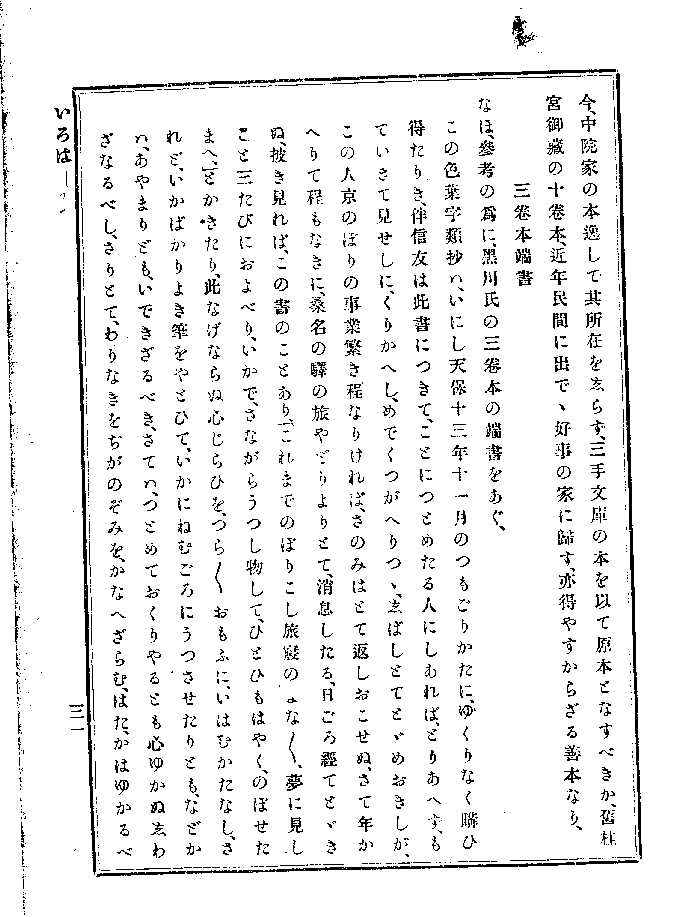 今、中院家の本逸して其所在をゑらず、三手文庫の本を以て原本となすべきか、舊桂
宮御藏の十卷本、近年民間に出で、好事の家に歸す、亦得やすからざる善本なり、
三卷本端書
なほ、參考の爲に、黑川氏の三卷本の端書をあぐ、
この色葉字類抄ハ、いにし天保十三年十一月のつもごりかたに、ゆくりなく購ひ
得たりき、伴信友は此書につきて、ことにつとめたる人にしあれば、とりあへず、も
ていきて見せしに、くりかへし、めでくつがへりつゝ、ゑばしとてとゞめおきしが、
この人京のぼりの事業繁き程なりければ、さのみはとて返しおこせぬ、さて年か
へりて程もなきに、桑名の驛の旅やどりよりとて、消息したる、日ごろ經てとゞき
ぬ、披き見れば、この書のことあり、「これまでのぼりこし旅寢のよな〳〵、夢に見し
こと三たびにおよべり、いかで、さながらうつし物して、ひとひもはやく、のぼせた
まへ」とかきたり、此なげならぬ心じらひを、つら〳〵おもふに、いはむかたなし、さ
れど、いかばかりよき筆をやとひて、いかにねむごろにうつさせたりとも、などか
ハ、あやまりども、いできざるべき、さてハ、つとめておくりやるとも心ゆかぬゑわ
ざなるべし、さりとて、わりなきをぢがのぞみを、かなへざらむ、はた、かはゆかるべ
いろは
三一